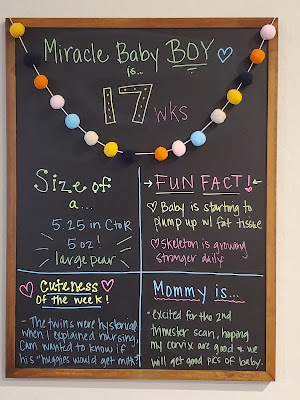 Miracle Baby BOY
is...
17 wks
Size of
a...
5.25 in CtoR
5 oz!
large pear
FUN FACT!
Baby is starting to
plump up w/ fat tissue
Skeleton is growing
stronger daily
Cuteness
of the week!
- The twins were hysterical
when I explained nursing.
Cam wanted to know if
his "huggies would get milk?"
Mommy is...
• excited for the 2nd
trimester scan, hoping
my cervix are good & we
will get good pics of baby.